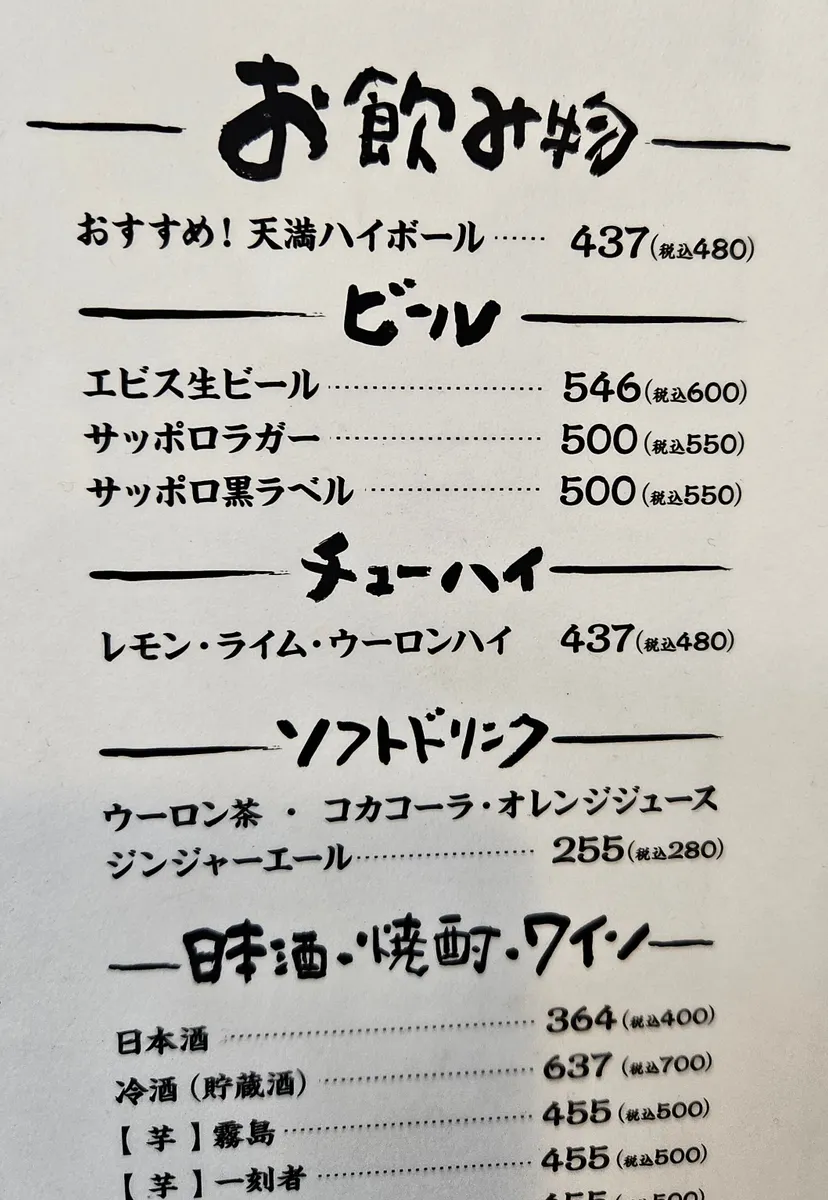 お飲み物
おすすめ！天満ハイボール …… 437(税込480)
ビール
エビス生ビール …… 546(税込600)
サッポロラガー …… 500(税込550)
サッポロ黒ラベル …… 500(税込550)
チューハイ
レモン・ライム・ウーロンハイ 437(税込480)
ソフトドリンク
ウーロン茶 ・ コカコーラ・オレンジジュース
ジンジャーエール …… 255(税込280)
日本酒・焼酎・ワイン
日本酒 …… 364(税込400)
冷酒(貯蔵酒) …… 637(税込700)
【芋】霧島 …… 455(税込500)
【芋】一刻者 …… 455(税込500)